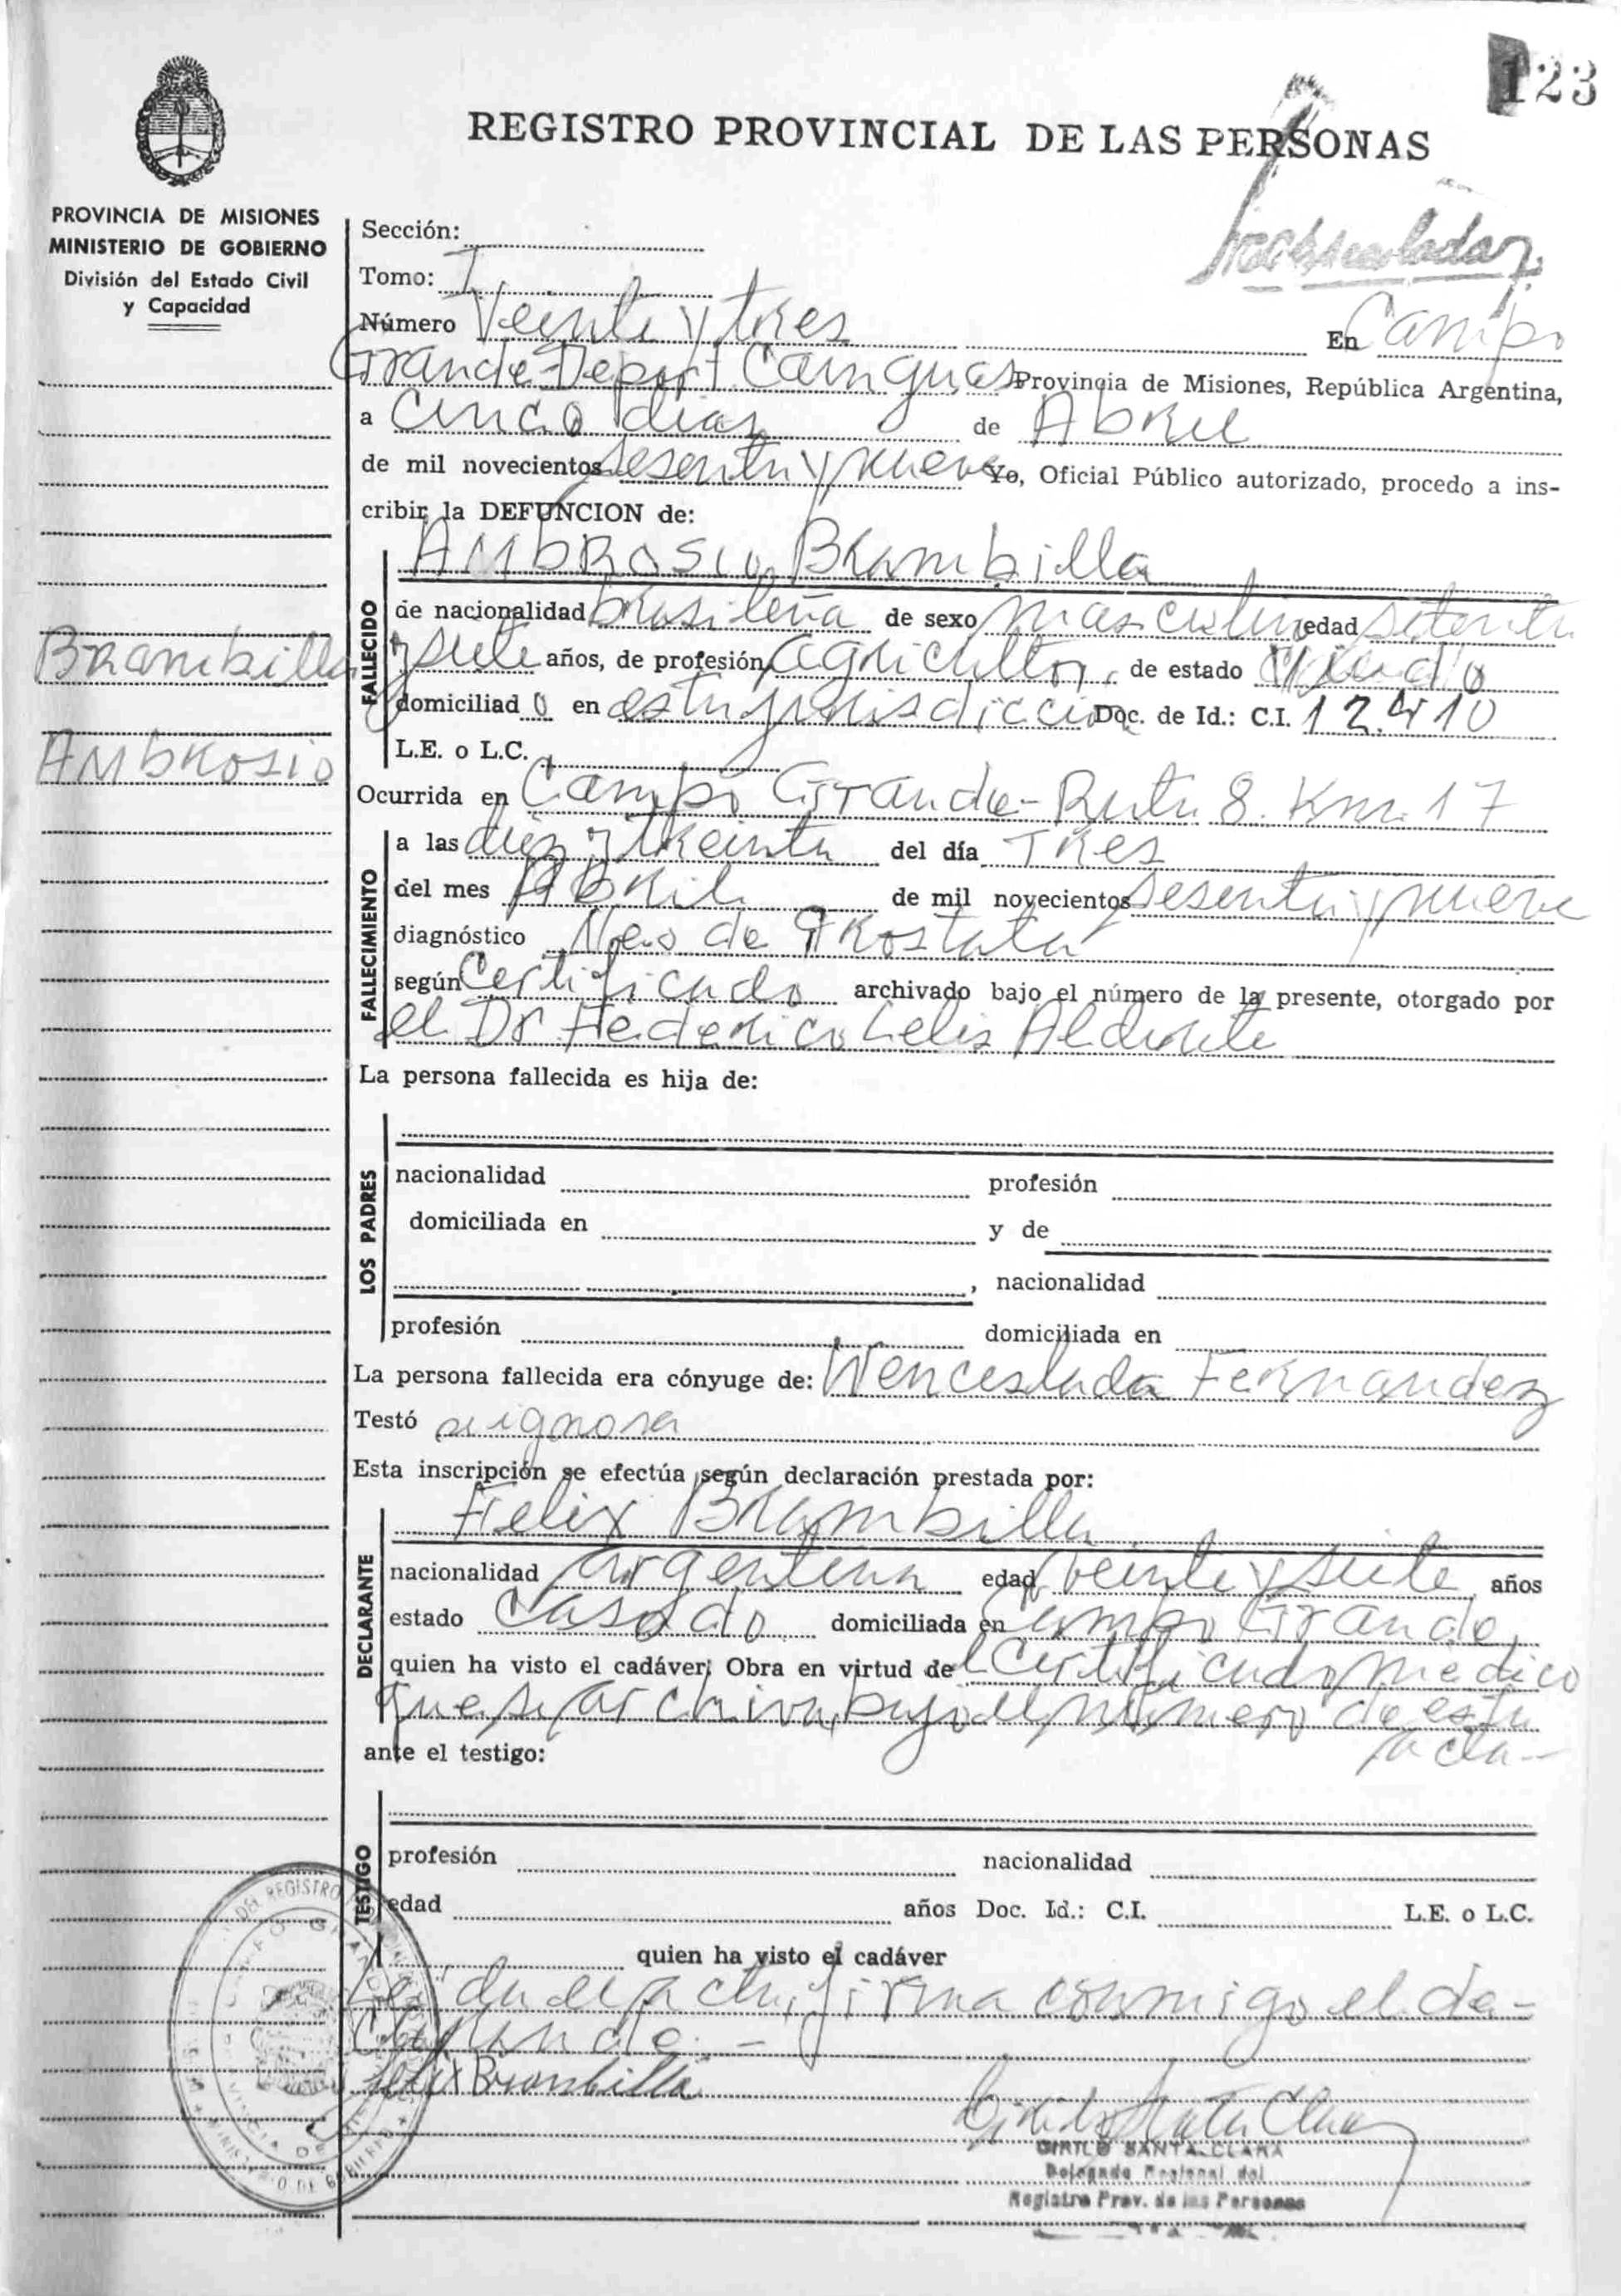 123
REGISTRO PROVINCIAL DE LAS PERSONAS
PROVINCIA DE MISIONES
MINISTERIO DE GOBIERNO
División del Estado Civil
y Capacidad
Sección:
Tomo: I
Número Veinte y tres En Campo
Grande-Depart Cainguas Provincia de Misiones, República Argentina,
a cinco dias de Abril
de mil novecientos sesenta y nueve Yo, Oficial Público autorizado, procedo a ins-
cribir la DEFUNCION de:
Ambrosio Brambilla
FALLECIDO
de nacionalidad brasileña de sexo masculino edad setenta
y siete años, de profesión agricultor, de estado
domiciliado en esta jurisdicción Doc. de Id.: C.I. 12.410
L.E. o L.C.
Brambilla
Ambrosio
Ocurrida en Campo Grande-Ruta 8. Km. 17
FALLECIMIENTO
a las diez y treinta del día Tres
del mes Abril de mil novecientos sesenta y nueve
diagnóstico Neo de Prostata
según Certificado archivado bajo el número de la presente, otorgado por
el Dr Federico Lelis Alderete
La persona fallecida es hija de:
LOS PADRES
nacionalidad profesión
domiciliada en y de
, nacionalidad
profesión domiciliada en
La persona fallecida era cónyuge de: Wenceslada Fernandez
Testó se ignora
Esta inscripción se efectúa según declaración prestada por:
Felix Brambilla
DECLARANTE
nacionalidad argentina edad veinte y siete años
estado Casado domiciliada en Campo Grande
quien ha visto el cadáver; Obra en virtud del Certificado medico
que se archiva bajo el numero de esta
acta-
ante el testigo:
TESTIGO
profesión nacionalidad
edad años Doc. Id.: C.I. L.E. o L.C.
quien ha visto el cadáver
Leida el acta, firma conmigo el de-
clarante.-
Felix Brambilla
CIRILO SANTA CLARA
Delegado Regional del
Registro Prov. de las Personas